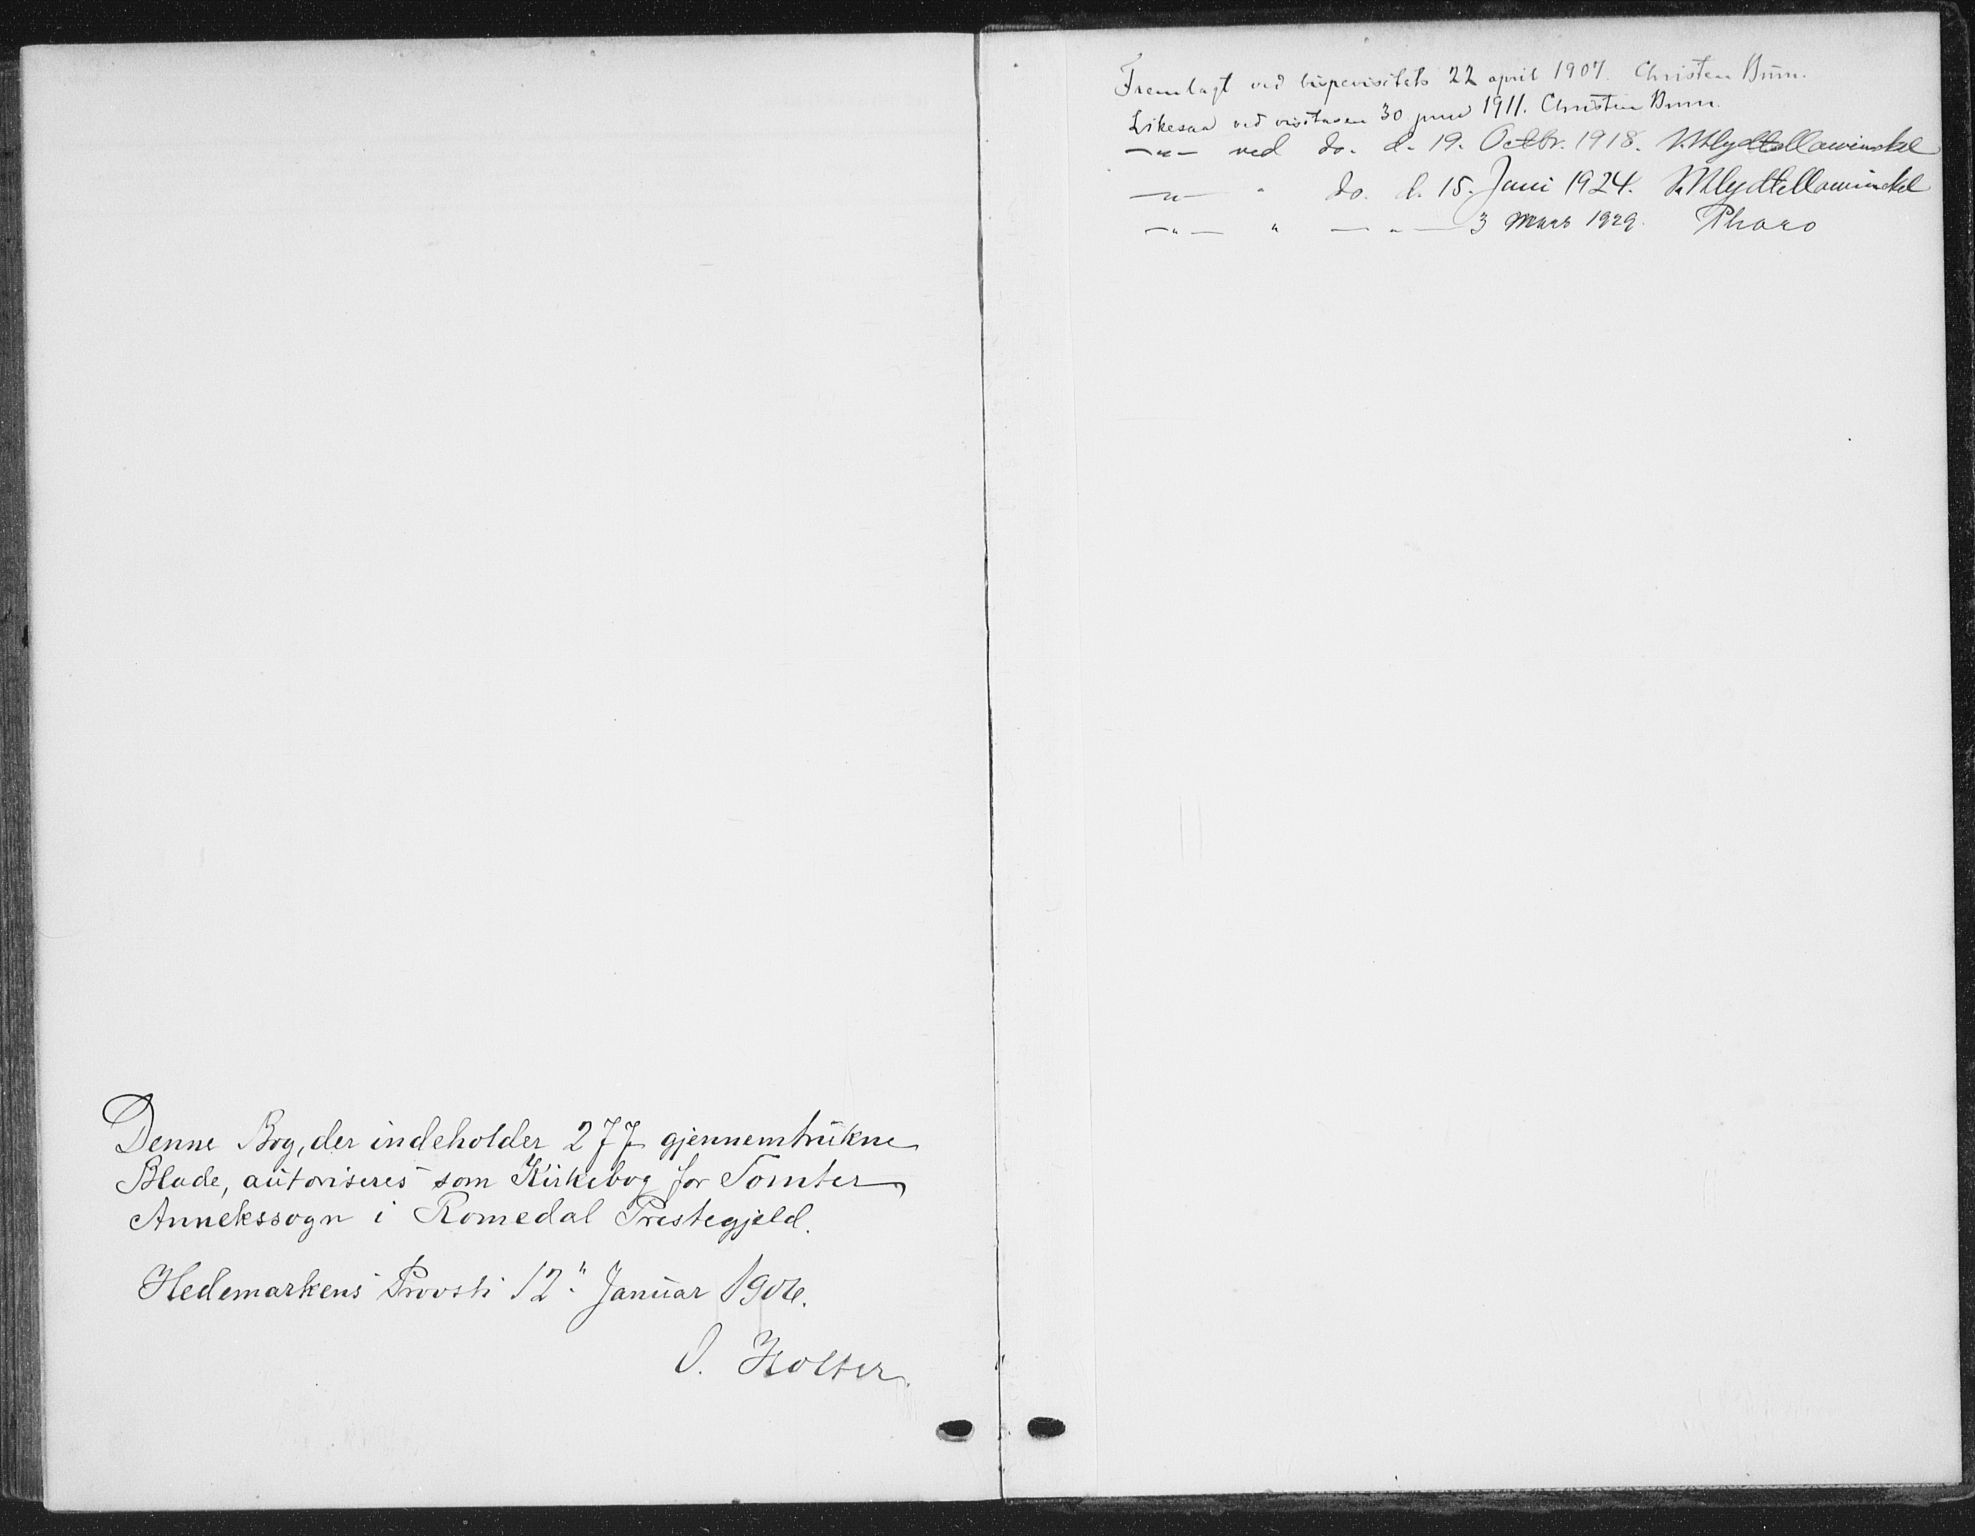 Denne Bog, der indeholder 277 gjennemtrukne
Blade, autoriseres som Kirkebog for Tomter
Annekssogn i Romedal Prestegjeld.
Hedemarkens Provsti 12" Januar 1906.
O. Holter.
Fremlagt ved bispevisitats 22 april 1907. Christen Brun.
Likesaa ved visitasen 30 juni 1911. Christen Brun.
—"— ved do. d. 19. Octbr. 1918.
—"— " do. d. 15. Juni 1924.
—"— " —"— 3 Mars 1929. Pharo